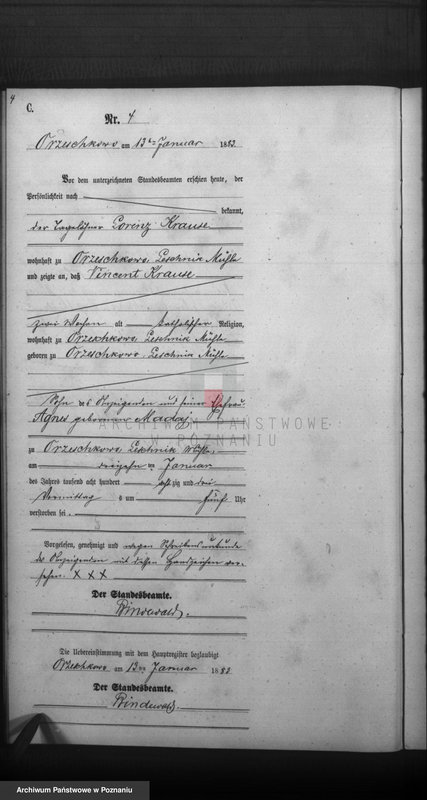 4
C.
Nr. 4
Orzeschkowo am 13ten Januar 1883.
Vor dem unterzeichneten Standesbeamten erschien heute, der
Persönlichkeit nach
bekannt,
der Tagelöhner Lorenz Krause
wohnhaft zu Orzeschkowo Leschnik Mühle
und zeigte an, daß Vincent Krause
zwei Wochen alt katholischer Religion,
wohnhaft zu Orzeschkowo Leschnik Mühle
geboren zu Orzeschkowo Leschnik Mühle
Sohn des Anzeigenden und seiner Ehefrau
Agnes geborenen Madaj
ARCHIWUM PAŃSTWOWE
W POZNANIU
zu Orzeschkowo Leschnik Mühle,
am Januar
des Jahres tausend acht hundert achtzig und drei
Vormittags um fünf Uhr
verstorben sei.
Vorgelesen, genehmigt und wegen Schreibensunkunde
des Anzeigenden mit dessen Handzeichen ver-
sehen. X X X
Der Standesbeamte.
Die Uebereinstimmung mit dem Hauptregister beglaubigt
Orzeschkowo am 13ten Januar 1883.
Der Standesbeamte.
Archiwum Państwowe w Poznaniu